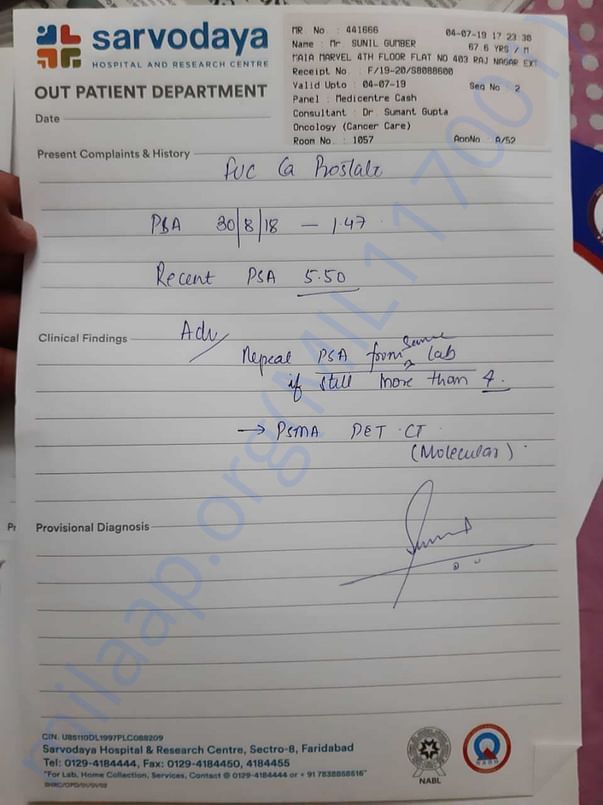 sarvodaya
HOSPITAL AND RESEARCH CENTRE
OUT PATIENT DEPARTMENT
Date
MR No : 441666 04-07-19 17 23 30
Name : Mr SUNIL GUMBER 67 6 YRS / M
MAIA MARVEL 4TH FLOOR FLAT NO 403 RAJ NAGAR EXT
Receipt No. : F/19-20/S8088600
Valid Upto : 04-07-19 Seq No : 2
Panel : Medicentre Cash
Consultant : Dr Sumant Gupta
Oncology (Cancer Care)
Room No. : 1057 AppNo A/52
Present Complaints & History
FUC Ca Prostate
PSA 30/8/18 — 1.47
Recent PSA 5.50
Clinical Findings
Adv
Repeal PSA from same lab
if still more than 4.
→ PSMA PET CT
(Molecular)
Provisional Diagnosis
CIN: U85110DL1997PLC088209
Sarvodaya Hospital & Research Centre, Sectro-8, Faridabad
Tel: 0129-4184444, Fax: 0129-4184450, 4184455
"For Lab, Home Collection, Services, Contact @ 0129-4184444 or + 91 7838858516"
NABL
NABH
milaap.org/MIL1117001